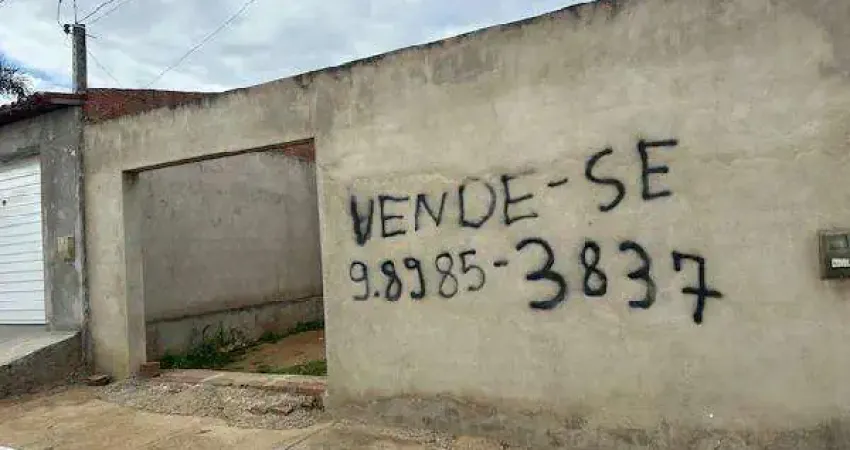 VENDE-SE
9.8985-3837